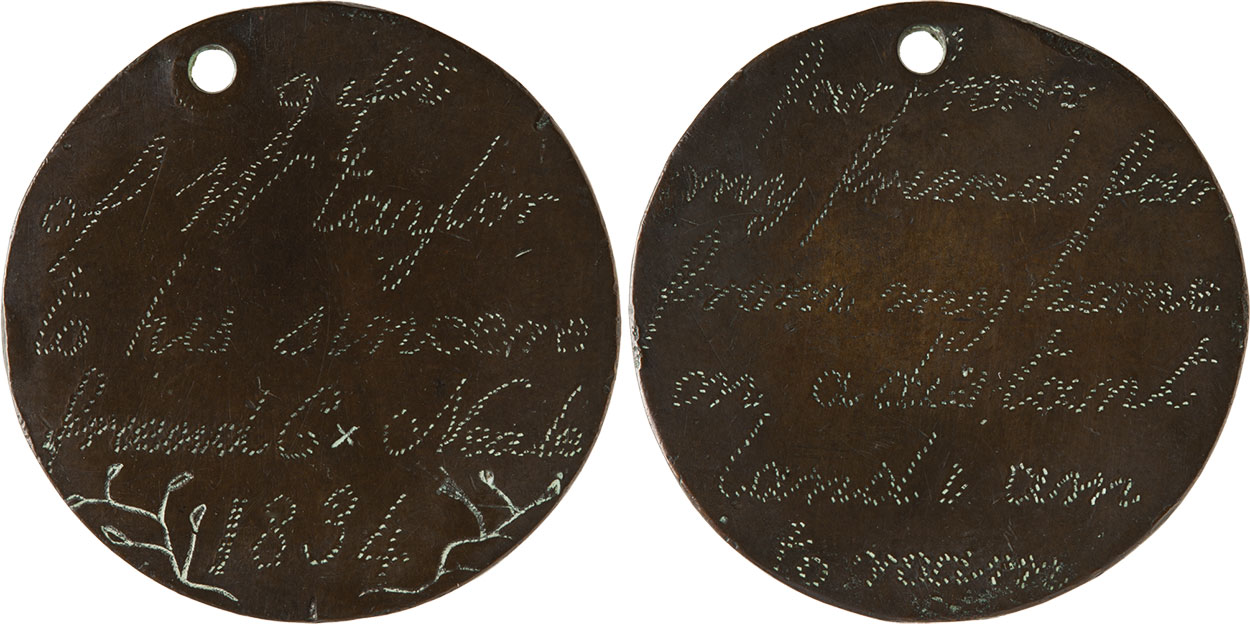 a gift
of W taylor
to his sincere
friend C x
1834
far from
my friends far
from my home
on a distant
land i am
to roam